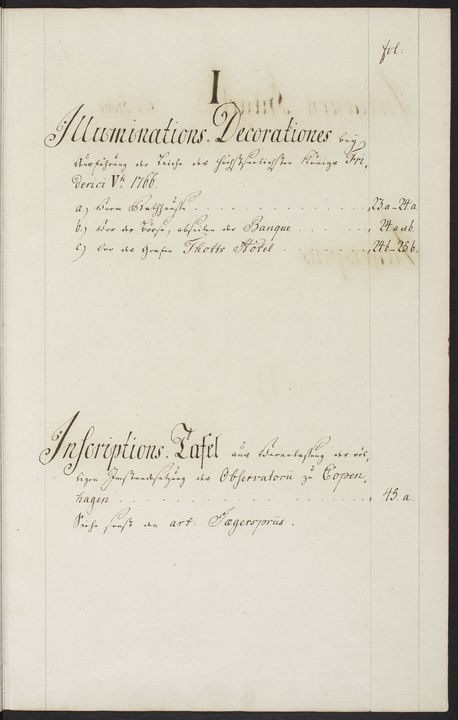 fol:
I
Illuminations-Decorationes bey
Ausführung der Leiche des Höchstseeligsten Königs Fri,
derici Vti. 1766.
a.) Vorm Rathhause . . . . . . . . . . . . . 23.a–24.a.
b.) Vor der Börse, abseiten der Banque . . . . . . . 24.a.&b.
c.) Vor des Grafen Thotts Hôtel . . . . . . . . 24b–25b.
Inscriptions-Tafel aus Veranlassung der völ,
ligen Instandsetzung des Observatorii zu Copen,
hagen . . . . . . . . . . . . . . . . . . . 45.a.
Siehe sonst den art: Jægerspriis.